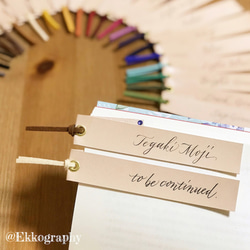 Tegaki Moji
to be continued.
@Ekkography